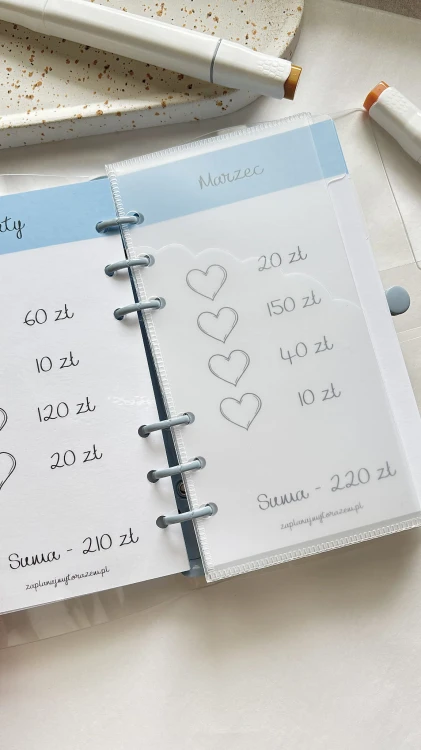 uty
60 zł
10 zł
120 zł
20 zł
Suma - 210 zł
zaplanujmytorazem.pl
Marzec
20 zł
150 zł
40 zł
10 zł
Suma - 220 zł
zaplanujmytorazem.pl